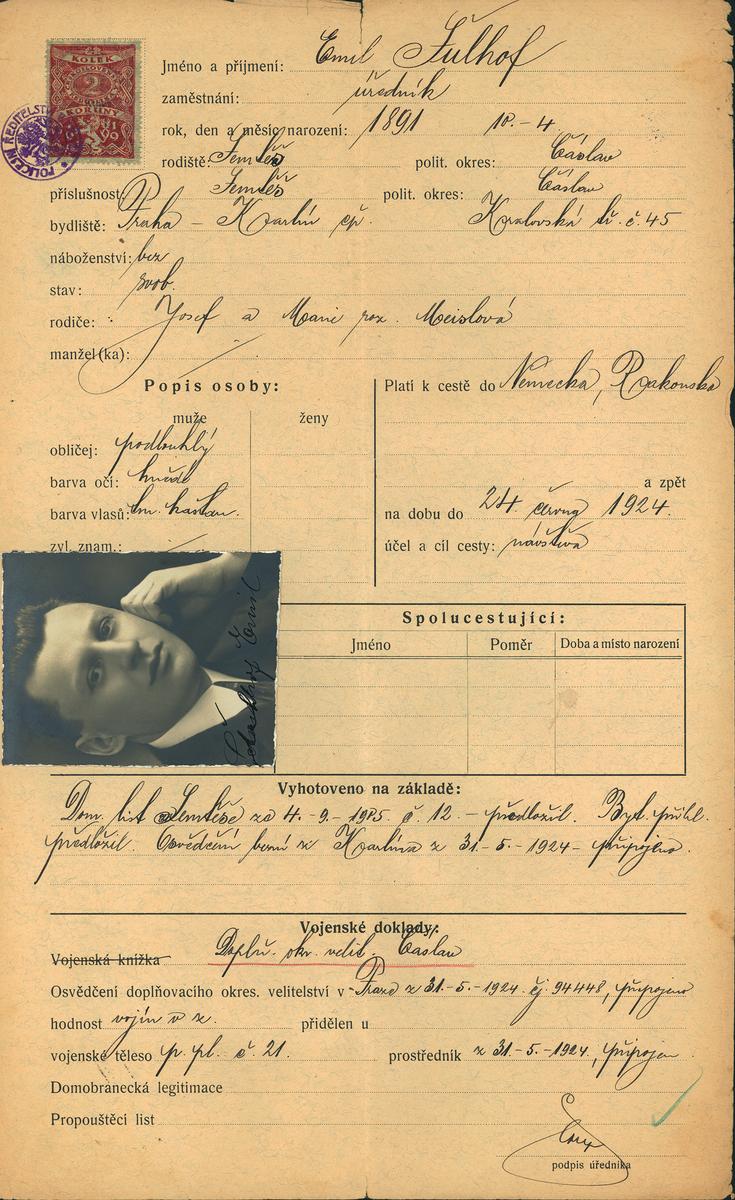 KOLEK
2
KORUNY
POLICEJNÍ ŘEDITELSTV
Jméno a příjmení: Emil Fulhof
zaměstnání: úředník
rok, den a měsíc narození: 1891 18.-4.
rodiště: Semtěš polit. okres: Čáslav
příslušnost: Semtěš polit. okres: Čáslav
bydliště: Praha – Karlín čp. Kralovská tř. č. 45
náboženství: bez
stav: svob.
rodiče: Josef a Marie roz. Meislová
manžel(ka):
Popis osoby:
muže ženy
obličej: podlouhlý
barva očí: hnědé
barva vlasů: tm. kaštan.
zvl. znam.:
Platí k cestě do Německa, Rakouska
a zpět
na dobu do 24 června 1924.
účel a cíl cesty: návštěva
Emil
Spolucestující:
Jméno Poměr Doba a místo narození
Vyhotoveno na základě:
Dom. list Semtěše ze 4.-9.- č. 12.- předložil. Byt. přihl.
předložil. Osvědčení berní z Karlína z 31.-5.-1924- připojeno.
Vojenské doklady:
Vojenská knížka Doplň. okr. velit. Čáslav
Osvědčení doplňovacího okres. velitelství v Praze z 31.-5.-1924 čj. 94448, připojeno
hodnost vojín v z. přidělen u
vojenské těleso p. pl. č. 21. prostředník z 31.-5.-1924, připojen
Domobranecká legitimace
Propouštěcí list
podpis úředníka